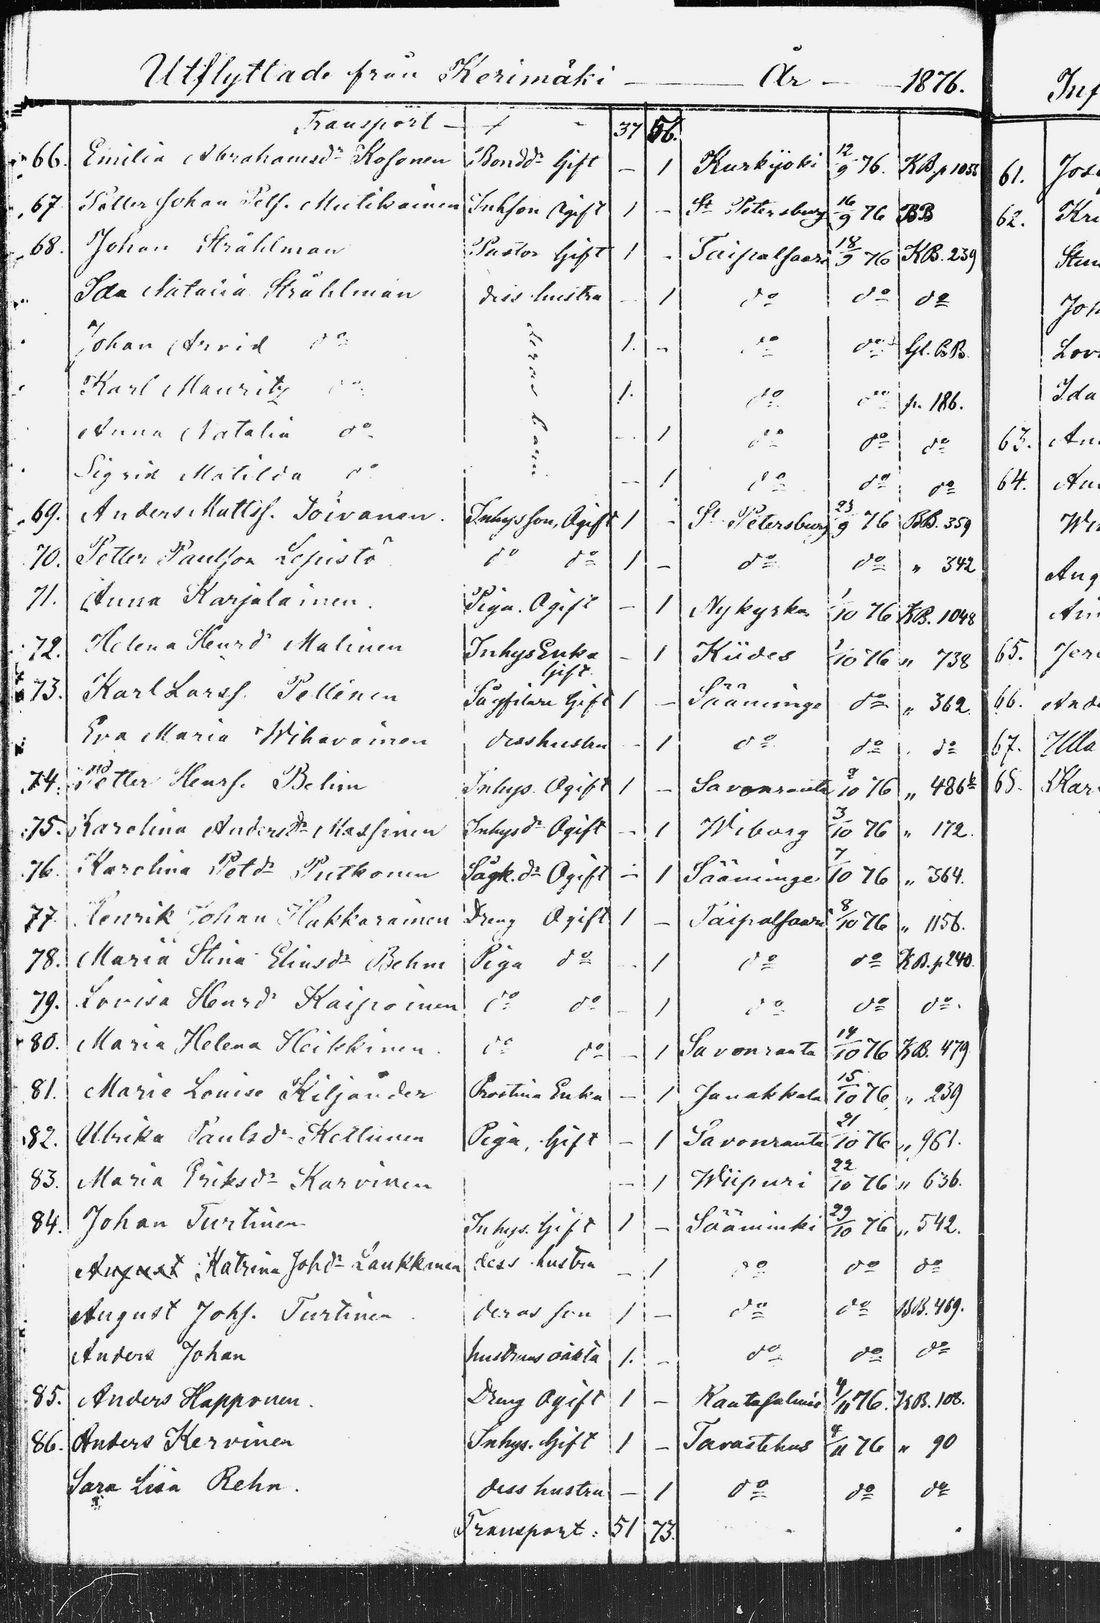 Utflyttade från Kerimäki — År — 1876.
Transport — 37 56.
66. Emilia Abrahamsdr Kosonen Bonddr Gift — 1 Kurkijoki 12/9 76. KB. p 1055
67. Petter Johan Pets. Mutikainen Inhson Ogift 1 — St Petersburg 16/9 76 BB
68. Johan Stråhlman Pastor Gift 1 — Taipalsaari 18/9 76 KB. 239
Ida Natalia Stråhlman dess hustru — 1 do do do
Johan Arvid do deras barn 1. — do do Gl. BB.
Karl Mauritz do 1. do do p. 186.
Anna Natalia do — 1 do do do
Sigrid Matilda do — 1 do do do
69. Anders Mattss. Toivanen. Inhysson, Ogift 1 — St Petersburg 23/9 76 BB. 359
70. Petter Paulson Lepistö do do 1 — do do " 342
71. Anna Karjalainen. Piga. Ogift — 1 Nykyrka 1/10 76 KB. 1048
72. Helena Henrdr Malinen Inhys Enka Gift. — 1 Kiides 1/10 76 " 738
73. Karl Larss. Pellinen Sågfilare Gift 1 — Sääminge do " 362
Eva Maria Wihavainen dess hustru — 1 do do do
74. Petter Henrs. Behm Inhys. Ogift 1 — Savonranta 2/10 76 " 486
75. Karolina Andersdr Massinen Inhysdr Ogift — 1 Wiborg 3/10 76 " 172.
76. Karolina Petdr Putkonen Sågk.dr Ogift — 1 Sääminge 7/10 76 " 364.
77. Henrik Johan Hakkarainen Dreng Ogift 1 — Taipalsaari 8/10 76 " 1156.
78. Maria Stina Eliasdr Behm Piga do — 1 do do KB. p 240.
79. Lovisa Henrdr Kaipainen do do — 1 do do do.
80. Maria Helena Heikkinen. do do — 1 Savonranta 14/10 76 KB. 479
81. Maria Louisa Kiljander Prostinna Enka — 1 Janakkala 15/10 76 " 239
82. Ulrika Paulsdr Kettunen Piga, Gift — 1 Savonranta 21/10 76 " 961.
83. Maria Eriksdr Karvinen — 1 Wiipuri 22/10 76 " 636.
84. Johan Turtinen Inhys. Gift 1 — Sääminki 29/10 76 " 542.
August Katrina Johdr Laukkanen dess hustru — 1 do do do
August Johs. Turtinen deras son 1 — do do BB. 469.
Anders Johan hustruns oäkta 1. — do do do
85. Anders Happonen. Dreng Ogift 1 — Rantasalmi 4/11 76. KB. 108.
86. Anders Kervinen Inhys. Gift 1 — Tavastehus 4/11 76 " 90
Sara Lisa Rehn. dess hustru — 1 do do do
Transport: 51 73.
Inf
61. Jos
62. Kri
Joh
Lov
Ida
63. An
64. An
Wi
Aug
An
65. Jer
66. And
67. Ulla
68. Kar